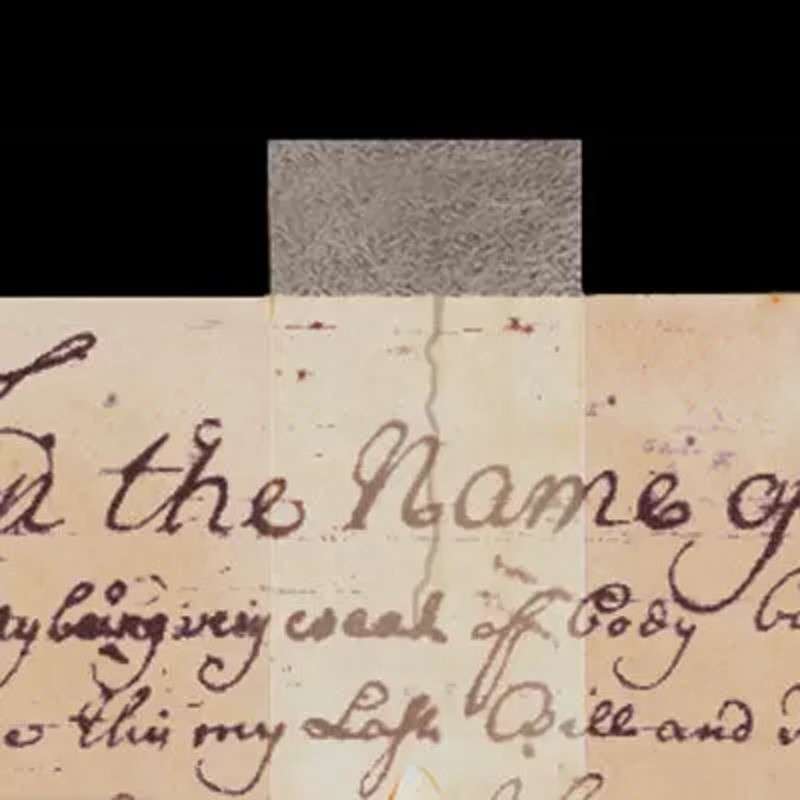 In the Name of
being very weak off body
this my Last Will and